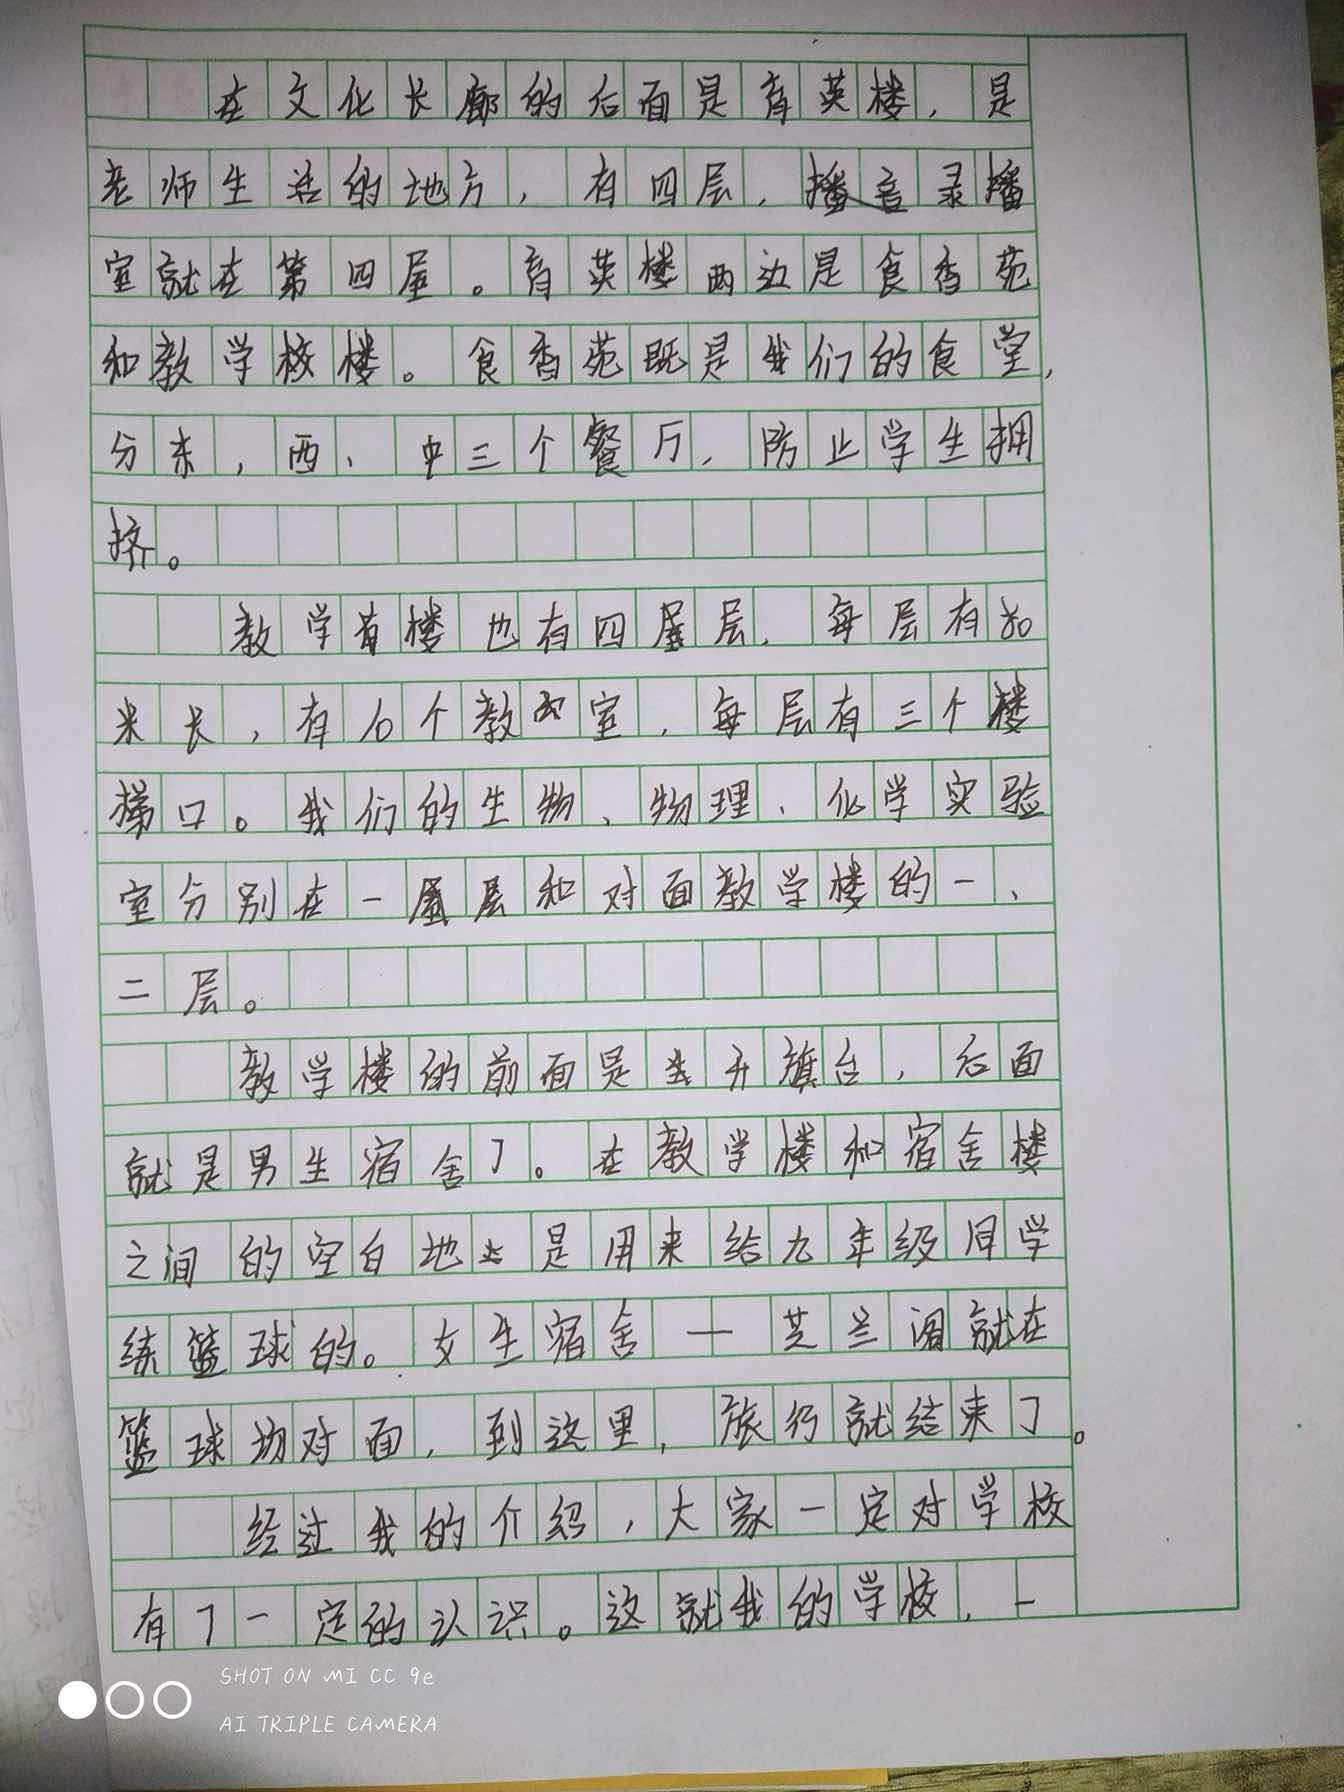 在文化长廊的后面是育英楼，是
老师生活的地方，有四层，录播
室就在第四层。育英楼两边是食香苑
和教学楼。食香苑既是我们的食堂，
分东，西、中三个餐厅，防止学生拥
挤。
教学楼也有四层，每层有80
米长，有10个教室，每层有三个楼
梯口。我们的生物、物理、化学实验
室分别在一层和对面教学楼的一、
二层。
教学楼的前面是升旗台，后面
就是男生宿舍了。在教学楼和宿舍楼
之间的空白地是用来给九年级同学
练篮球的。女生宿舍—芝兰阁就在
篮球场对面，到这里，旅行就结束了。
经过我的介绍，大家一定对学校
有了一定的认识。这就我的学校，一
SHOT ON MI CC 9e
AI TRIPLE CAMERA